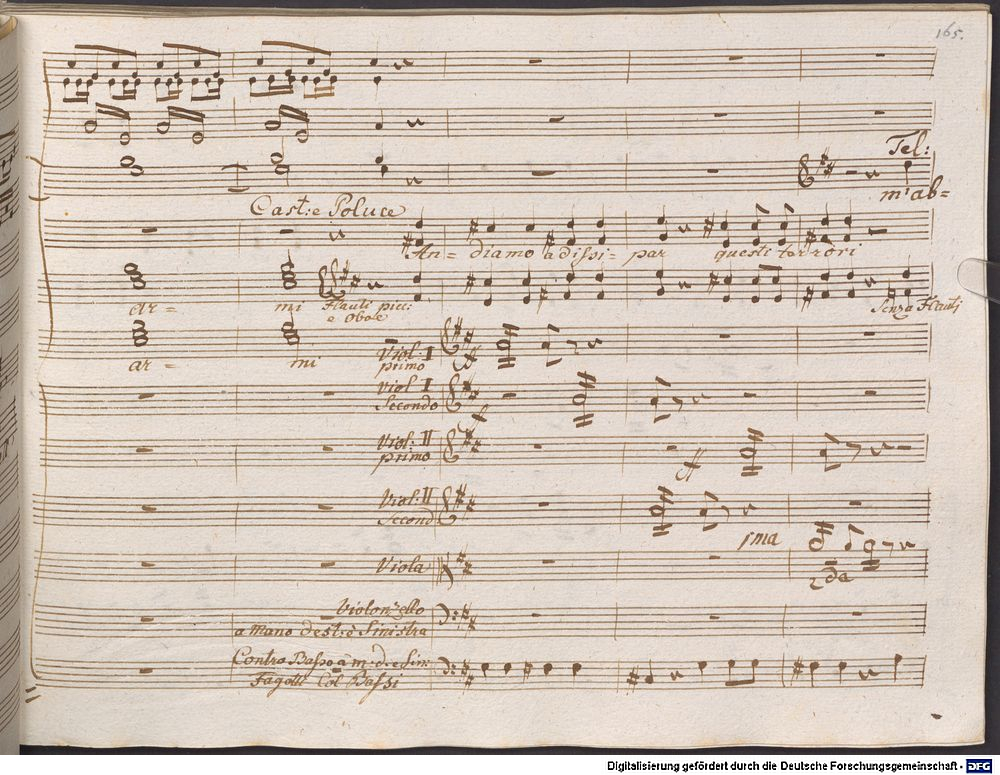 165.
Tel:
m'ab=
Cast: e Poluce
An= diamo a dissi= par questi terrori
ar= mi Flauti picc: Senza Flauti
e Oboe
ar= mi Viol: I
primo
Viol I
Secondo
f
Viol: II
primo
ff
Viol: II
Second
1ma
Viola
2da
Violonzello
a mano dest: e Sinistra
Contro Basso a m: d: e Sin:
Fagotti Col Bassi
Digitalisierung gefördert durch die Deutsche Forschungsgemeinschaft - DFG